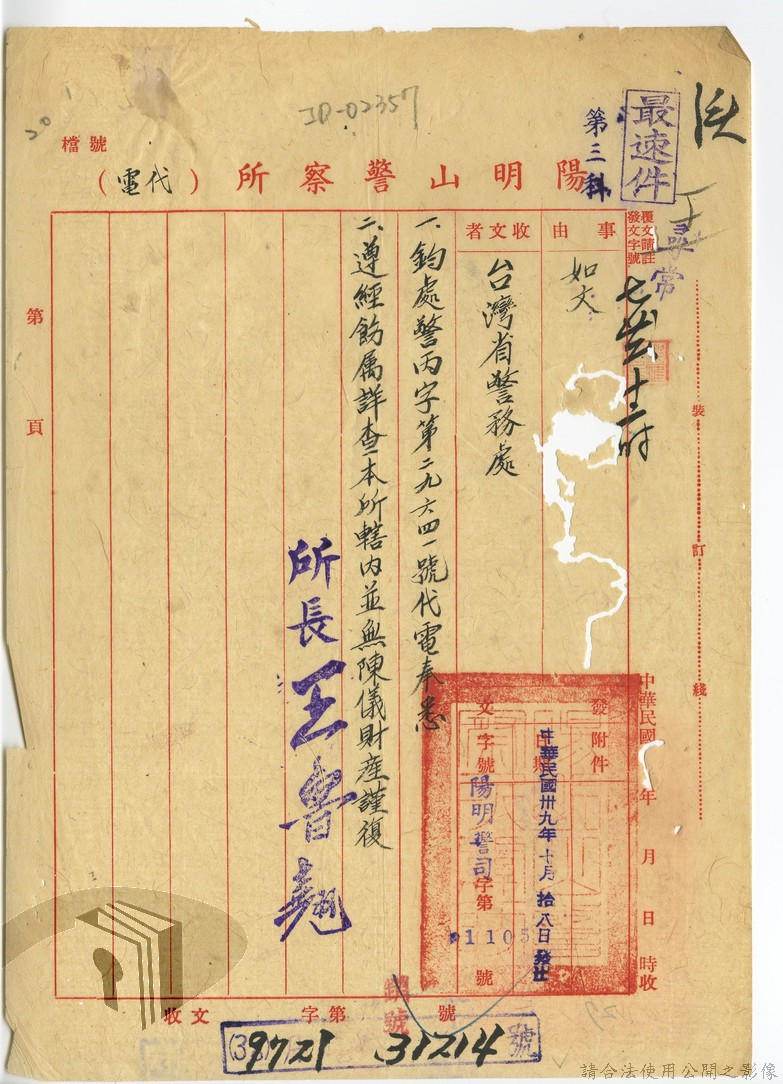 ID-02357
最速件
第三科
尋常
檔號
陽明山警察所（代電）
覆文請註發文字號
事由
如文
收文者
台灣省警務處
一、鈞處警丙字第二九六四一號代電奉悉
二、遵經飭属詳查本所轄內並無陳儀財產謹復
所長王魯翹
附件
發文
日期
中華民國卅九年十月拾八日發出
字號
陽明警司字第1105號
中華民國 年 月 日 時收
裝訂線
第 頁
收文 字第 號
(39)9721 31214號
請合法使用公開之影像